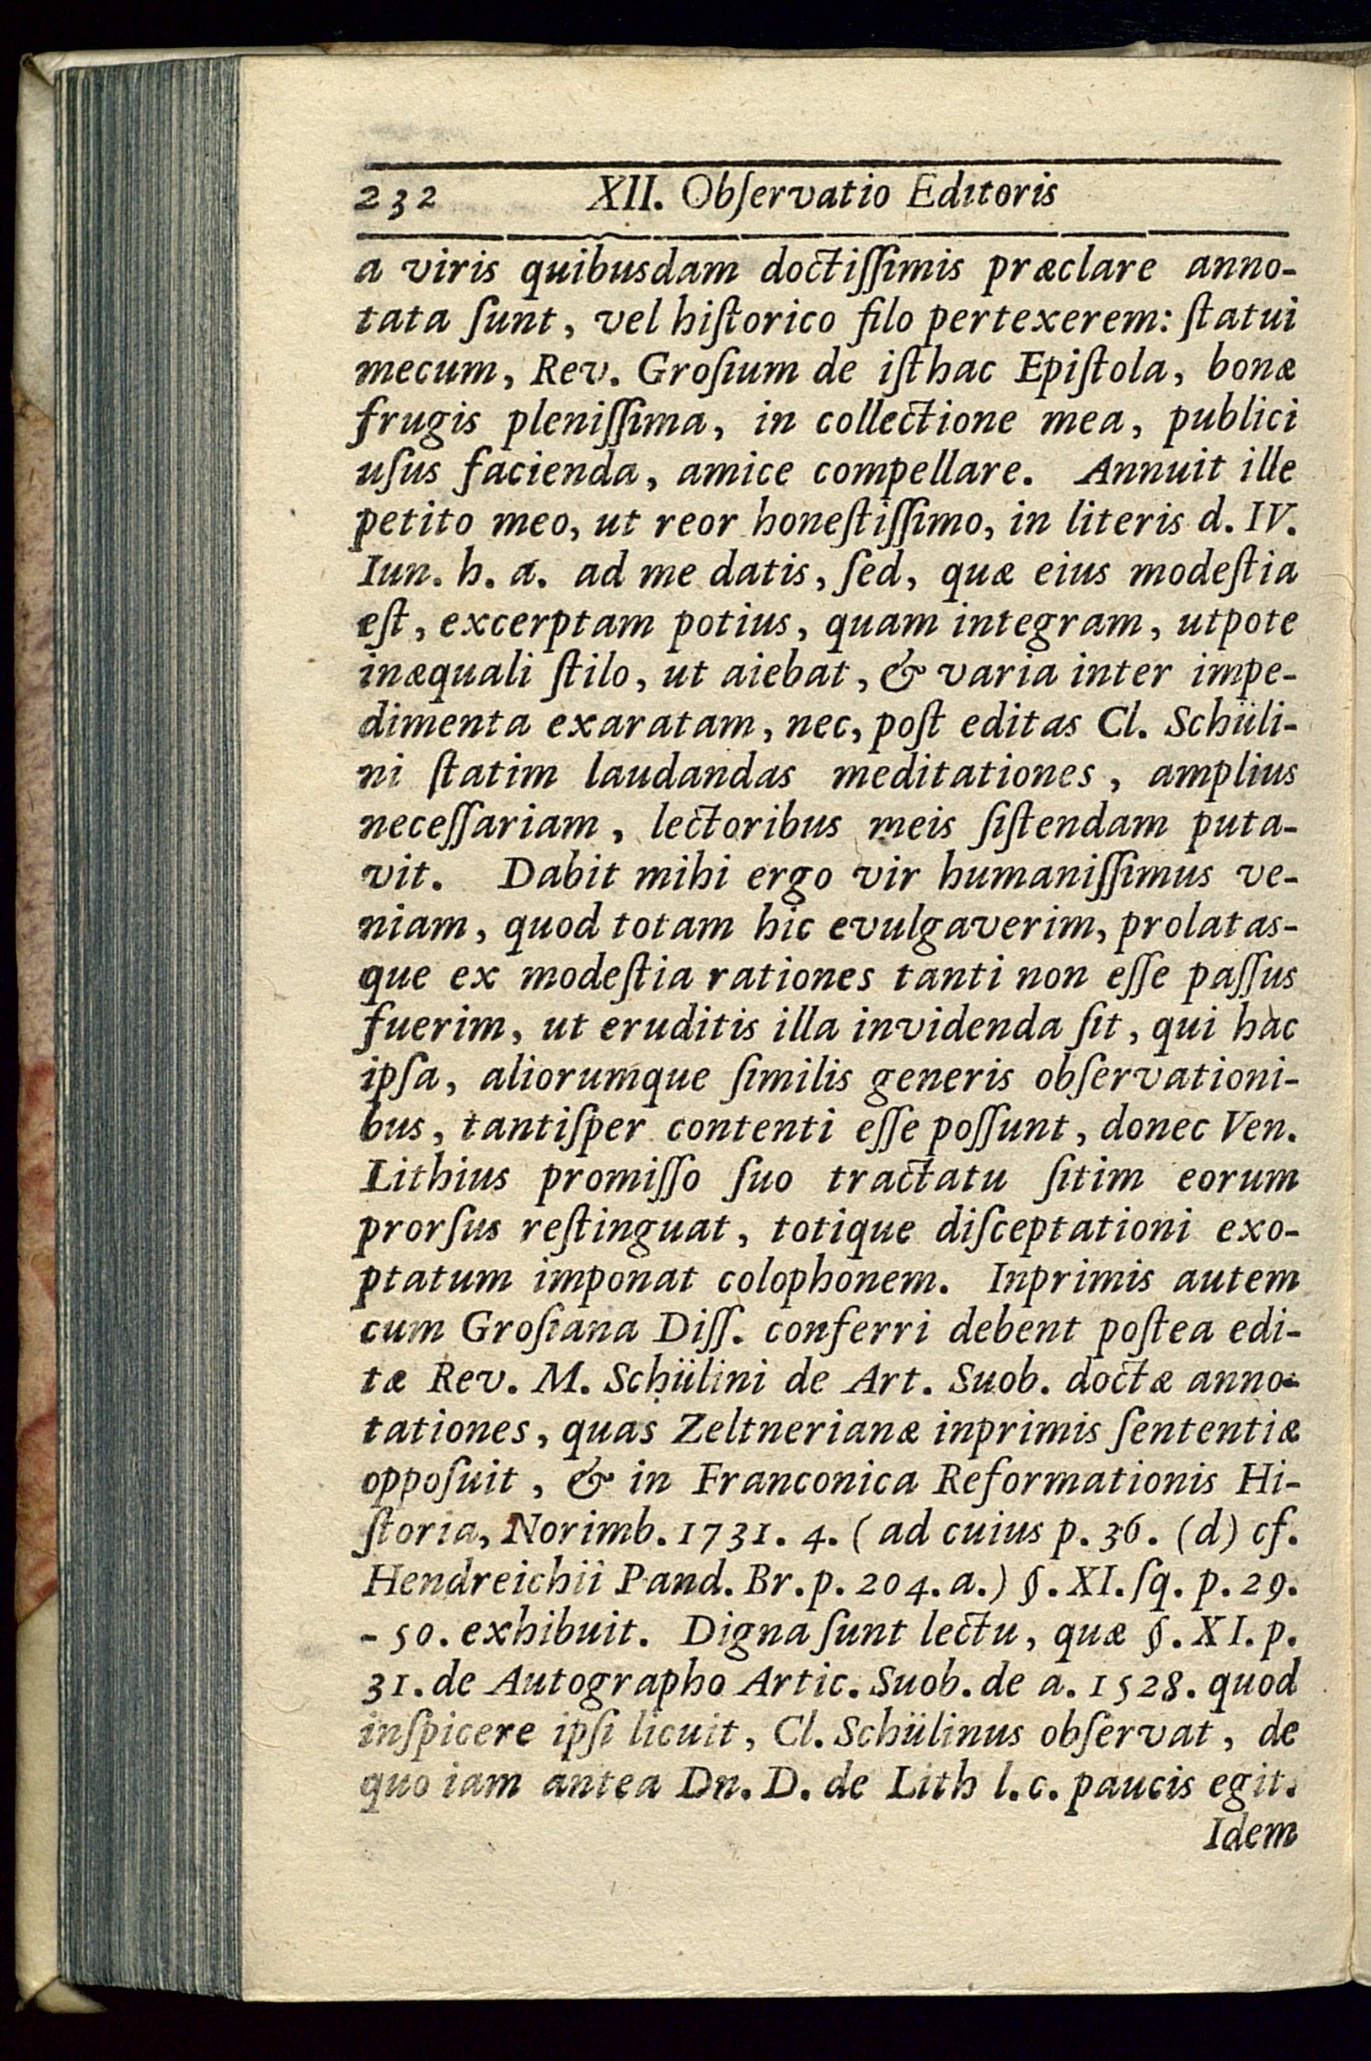 232 XII. Obſervatio Editoris
a viris quibusdam doctiſſimis præclare anno-
tata ſunt, vel hiſtorico filo pertexerem: ſtatui
mecum, Rev. Groſium de iſthac Epiſtola, bonæ
frugis pleniſſima, in collectione mea, publici
uſus facienda, amice compellare. Annuit ille
petito meo, ut reor honeſtiſſimo, in literis d. IV.
Iun. h. a. ad me datis, ſed, quæ eius modeſtia
eſt, excerptam potius, quam integram, utpote
inæquali ſtilo, ut aiebat, & varia inter impe-
dimenta exaratam, nec, poſt editas Cl. Schüli-
ni ſtatim laudandas meditationes, amplius
neceſſariam, lectoribus meis ſiſtendam puta-
vit. Dabit mihi ergo vir humaniſſimus ve-
niam, quod totam hic evulgaverim, prolatas-
que ex modeſtia rationes tanti non eſſe paſſus
fuerim, ut eruditis illa invidenda ſit, qui hac
ipſa, aliorumque ſimilis generis obſervationi-
bus, tantiſper contenti eſſe poſſunt, donec Ven.
Lithius promiſſo ſuo tractatu ſitim eorum
prorſus reſtinguat, totique diſceptationi exo-
ptatum imponat colophonem. Inprimis autem
cum Groſiana Diſſ. conferri debent poſtea edi-
tæ Rev. M. Schülini de Art. Suob. doctæ anno-
tationes, quas Zeltnerianæ inprimis ſententiæ
oppoſuit, & in Franconica Reformationis Hi-
ſtoria, Norimb. 1731. 4. (ad cuius p. 36. (d) cf.
Hendreichii Pand. Br. p. 204. a.) §. XI. ſq. p. 29.
- 50. exhibuit. Digna ſunt lectu, quæ §. XI. p.
31. de Autographo Artic. Suob. de a. 1528. quod
inſpicere ipſi licuit, Cl. Schülinus obſervat, de
quo iam antea Dn. D. de Lith l. c. paucis egit.
Idem